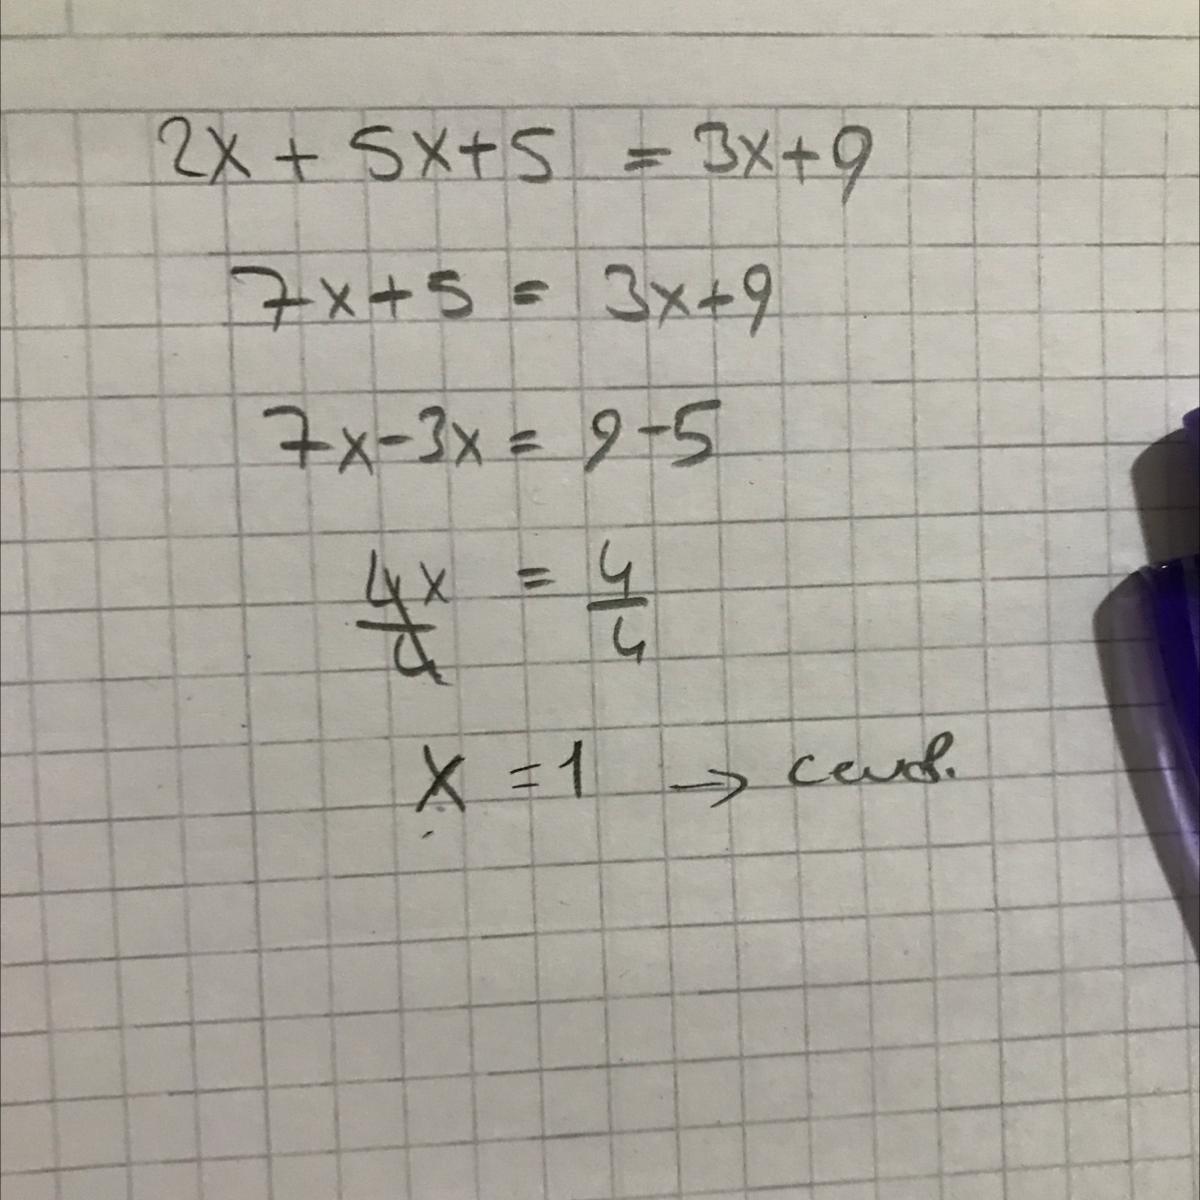 2x + 5x+5 = 3x+9
7x+5 = 3x+9
7x-3x = 9-5
4x/4 = 4/4
x = 1 →